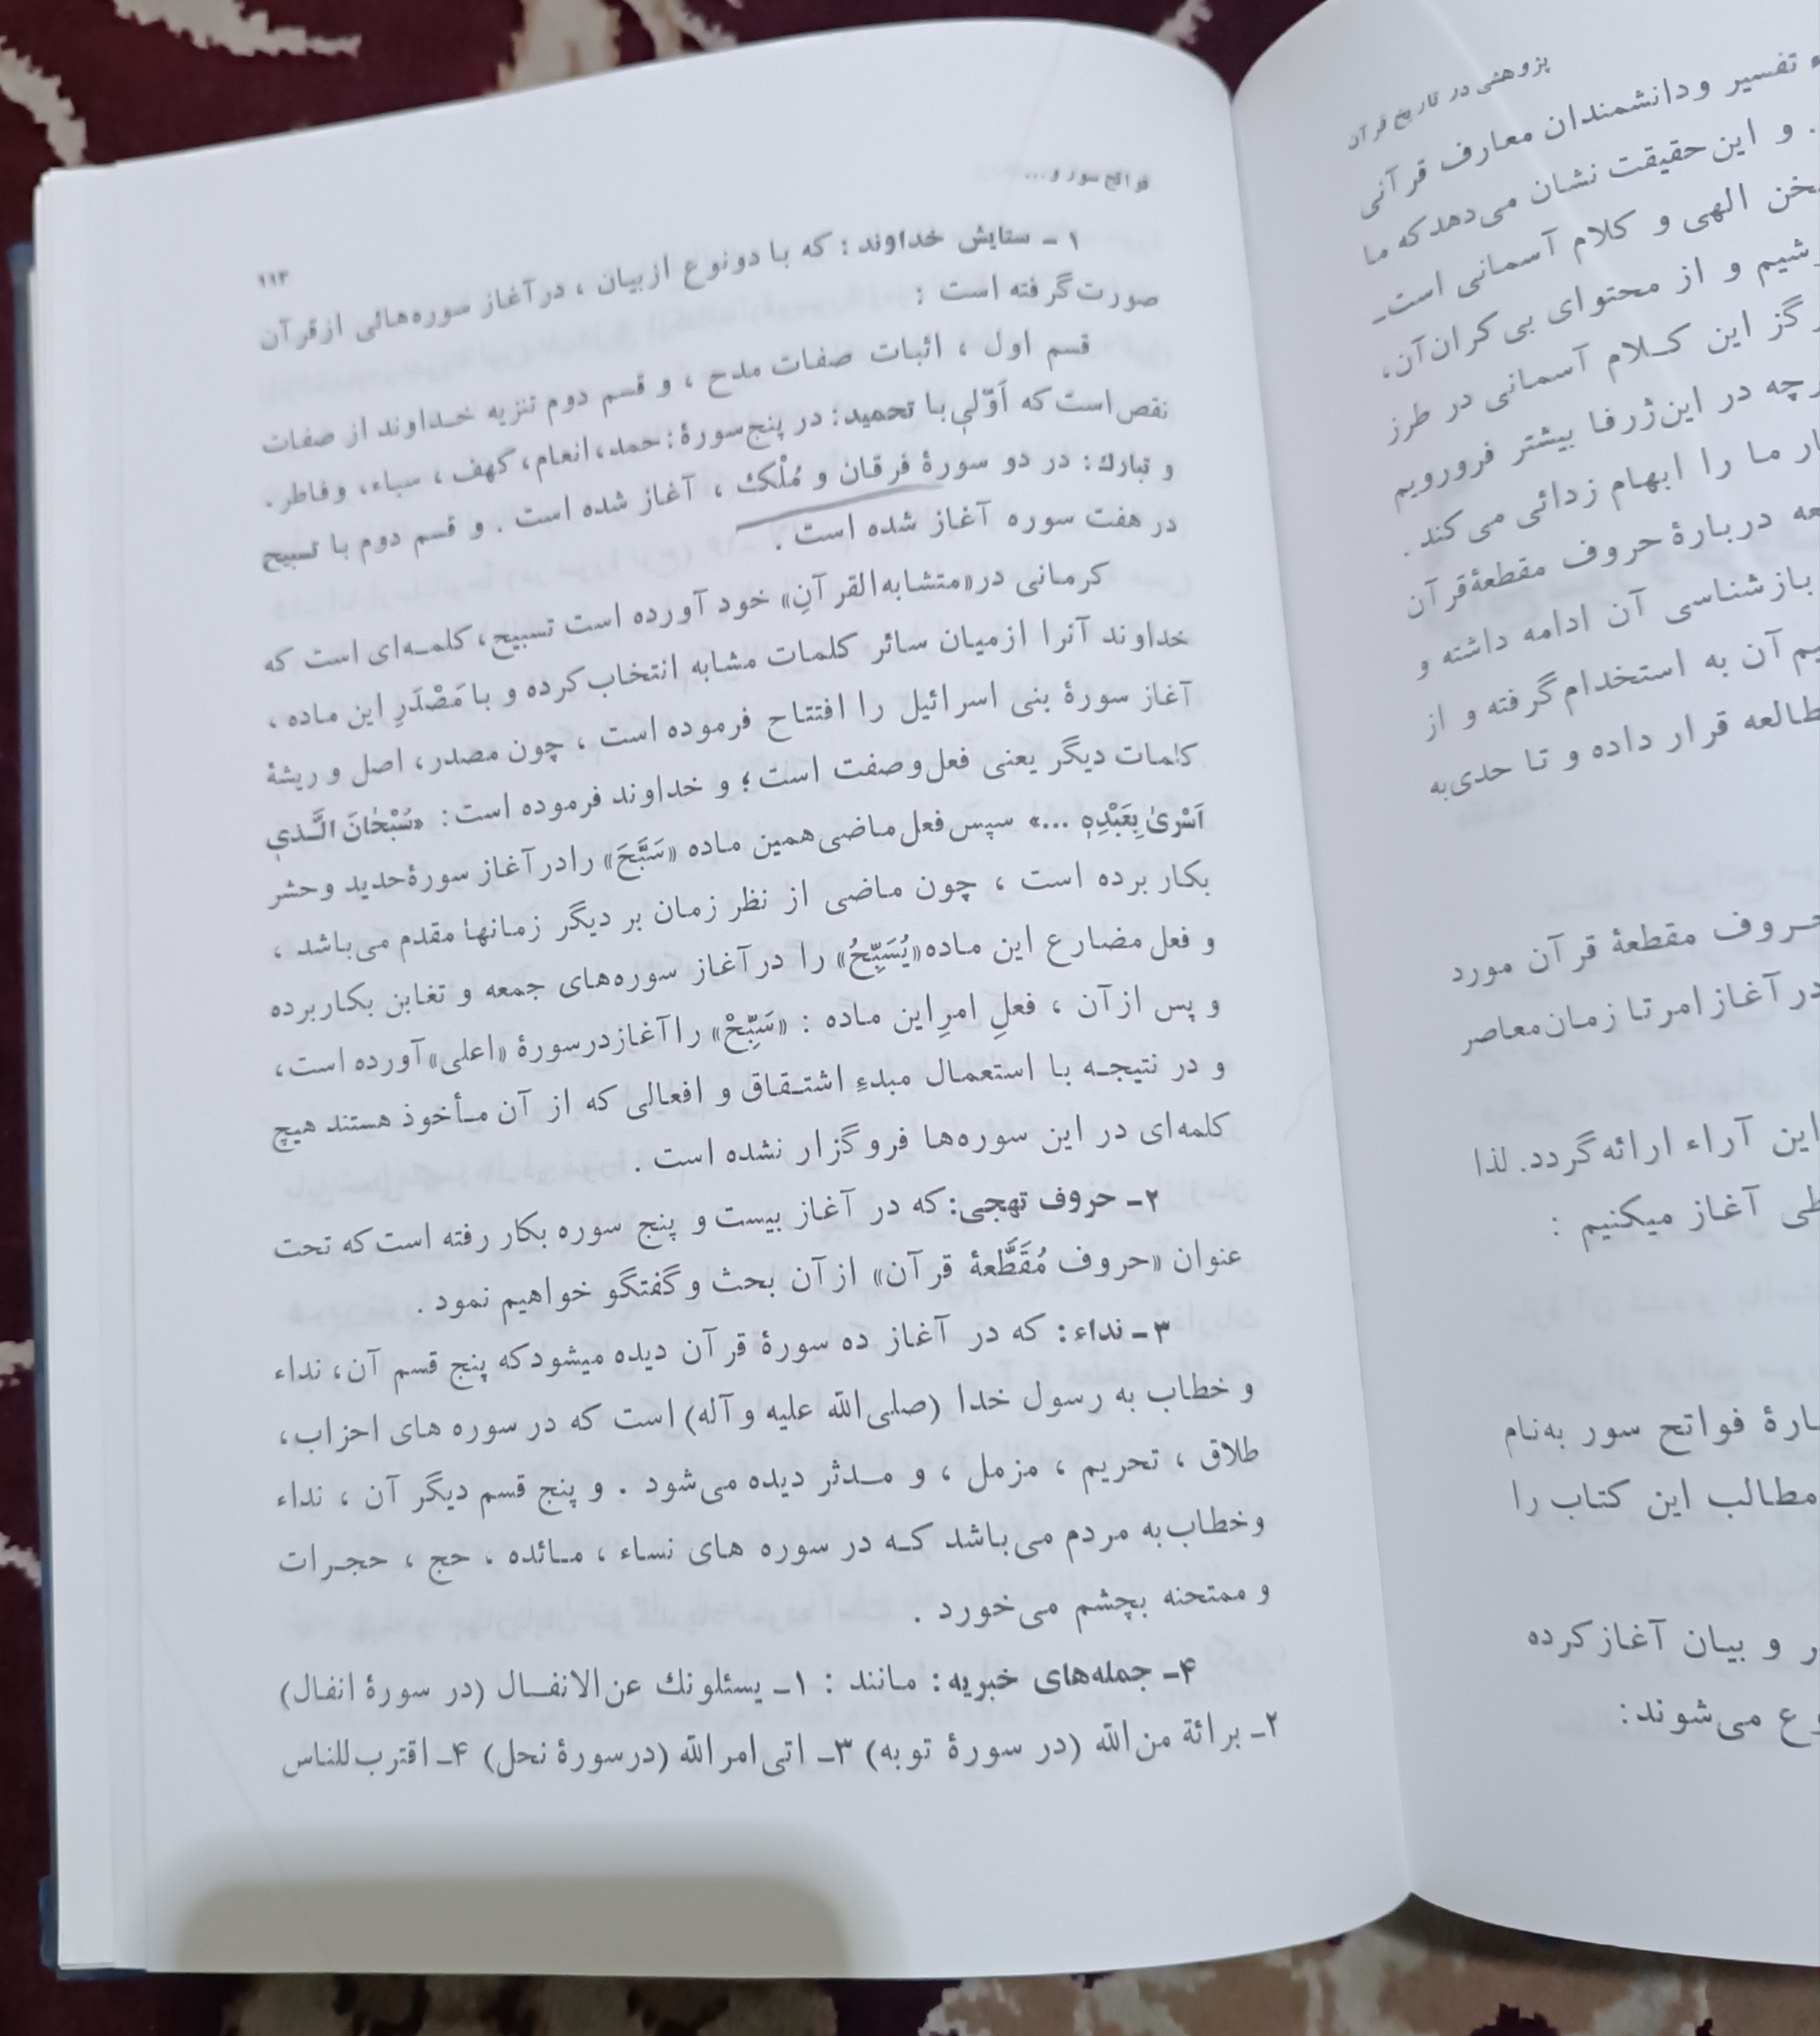 فواتح سور و...
۱۱۳
۱ - ستایش خداوند : که با دونوع ازبیان ، درآغاز سوره‌هائی ازقرآن
صورت گرفته است :
قسم اول ، اثبات صفات مدح ، و قسم دوم تنزیه خداوند از صفات
نقص است که اَوّلیٖ با تحمید: در پنج سورۀ: حمد، انعام، کهف ، سباء، وفاطر.
و تبارك: در دو سورۀ فرقان و مُلْک ، آغاز شده است . و قسم دوم با تسبیح
در هفت سوره آغاز شده است .
کرمانی در «متشابه القرآنِ» خود آورده است تسبیح، کلمه‌ای است که
خداوند آنرا ازمیان سائر کلمات مشابه انتخاب کرده و با مَصْدَرِ این ماده ،
آغاز سورۀ بنی اسرائیل را افتتاح فرموده است ، چون مصدر، اصل و ریشۀ
کلمات دیگر یعنی فعل وصفت است ؛ و خداوند فرموده است: «سُبْحٰانَ الَّذیٖ
اَسْریٰ بِعَبْدِهٖ ...» سپس فعل ماضی همین ماده «سَبَّحَ» رادرآغاز سورۀ حدید وحشر
بکار برده است ، چون ماضی از نظر زمان بر دیگر زمانها مقدم می‌باشد ،
و فعل مضارع این ماده «یُسَبِّحُ» را درآغاز سوره‌های جمعه و تغابن بکاربرده
و پس ازآن ، فعلِ امرِاین ماده : «سَبِّحْ» راآغازدرسورۀ «اعلی» آورده است،
و در نتیجه با استعمال مبدءِ اشتقاق و افعالی که از آن مأخوذ هستند هیچ
کلمه‌ای در این سوره‌ها فروگزار نشده است .
۲- حروف تهجی: که در آغاز بیست و پنج سوره بکار رفته است که تحت
عنوان «حروف مُقَطَّعۀ قرآن» ازآن بحث وگفتگو خواهیم نمود .
۳- نداء: که در آغاز ده سورۀ قرآن دیده میشودکه پنج قسم آن، نداء
و خطاب به رسول خدا (صلی‌الله علیه وآله) است که در سوره های احزاب،
طلاق ، تحریم ، مزمل ، و مدثر دیده می‌شود . و پنج قسم دیگر آن ، نداء
وخطاب به مردم می‌باشد که در سوره های نساء ، مائده ، حج ، حجرات
و ممتحنه بچشم می‌خورد .
۴- جمله‌های خبریه: مانند : ۱- یسئلونك عن‌الانفال (در سورۀ انفال)
۲- برائة من‌الله (در سورۀ توبه) ۳- اتی امرالله (درسورۀ نحل) ۴- اقترب للناس
پژوهشی در تاریخ قرآن
تفسیر ودانشمندان معارف قرآنی
. و این حقیقت نشان می‌دهدکه ما
الهی و کلام آسمانی است-
و از محتوای بی‌کران آن،
این کلام آسمانی در طرز
در این ژرفا بیشتر فرورویم
ما را ابهام زدائی می‌کند .
دربارۀ حروف مقطعۀ قرآن
بازشناسی آن ادامه داشته و
آن به استخدام گرفته و از
قرار داده و تا حدی به
مقطعۀ قرآن مورد
درآغازامر تا زمان معاصر
این آراء ارائه گردد. لذا
آغاز میکنیم :
فواتح سور به‌نام
مطالب این کتاب را
و بیان آغازکرده
می‌شوند: